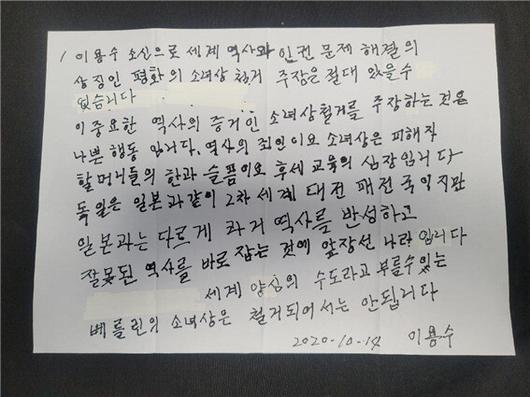 이용수 소신으로 세계 역사와 인권 문제 해결의
상징인 평화의 소녀상 철거 주장은 절대 있을수
없습니다
이중요한 역사의 증거인 소녀상철거를 주장하는 것은
나쁜 행동 입니다. 역사의 죄인이오 소녀상은 피해자
할머니들의 한과 슬픔이오 후세 교육의 심장입니다
독일은 일본과같이 2차 세계 대전 패전국이지만
일본과는 다르게 과거 역사를 반성하고
잘못된 역사를 바로 잡는 것에 앞장선 나라입니다
세계 양심의 수도라고 부를수있는
베를린의 소녀상은 철거되어서는 안됩니다
2020-10-14 이용수